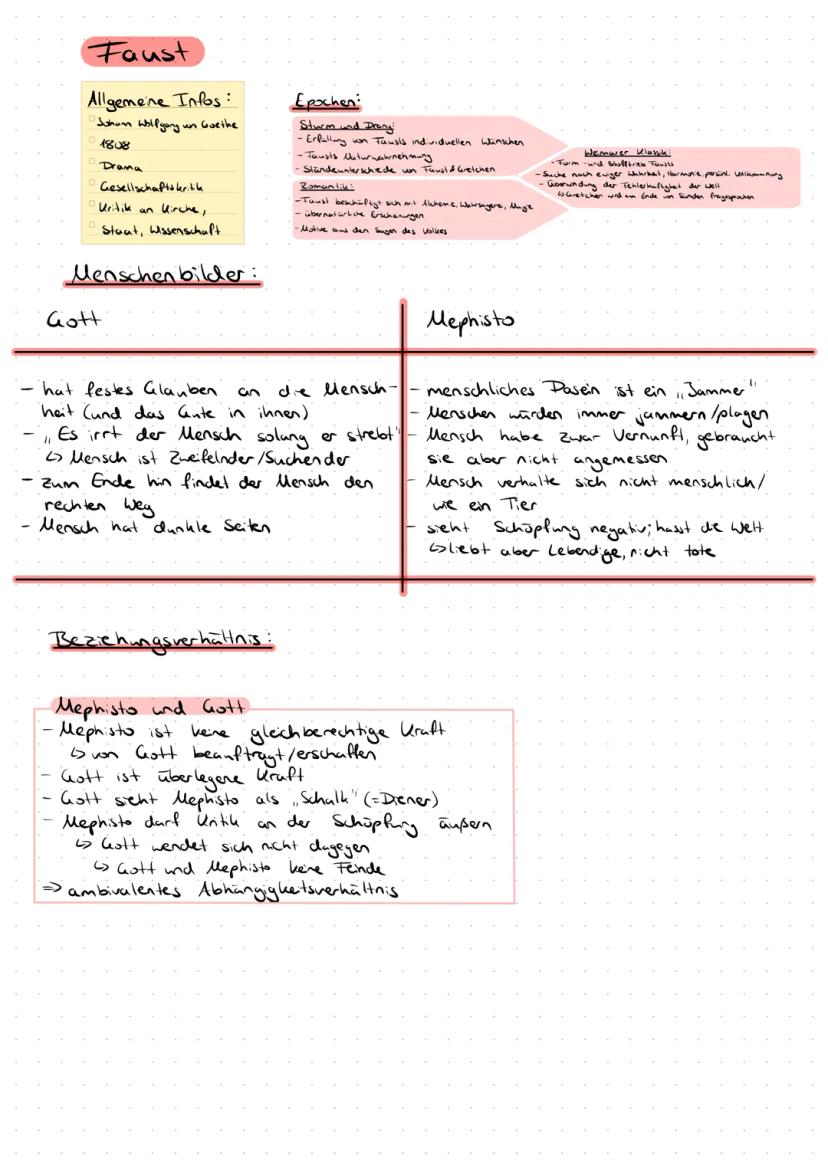 Faust
Allgemeine Infos:
Johann Wolfgang von Goethe
1808
Drama
Gesellschaftskritik
Kritik an Kirche,
Staat, Wissenschaft
Epochen:
Sturm und Drang:
- Erfüllung von Fausts individuellen Wünschen
- Fausts Naturwahrnehmung
- Ständeunterschiede von Faust & Gretchen
Romantik:
- Faust beschäftigt sich mit Alchemie, Wahrsagerei, Magie
- übernatürliche Erscheinungen
- Motive aus den Sagen des Volkes
Weimarer Klassik:
- Form- und Stofftrieb Fausts
- Suche nach ewiger Wahrheit, Harmonie, persönl. Vollkommnung
- Überwindung der Fehlerhaftigkeit der Welt
↳ Gretchen wird am Ende von Sünden freigesprochen
Menschenbilder:
Gott
- hat festes Glauben an die Mensch-
heit (und das Gute in ihnen)
- „Es irrt der Mensch solang er strebt"
↳ Mensch ist Zweifelnder/Suchender
- zum Ende hin findet der Mensch den
rechten Weg
- Mensch hat dunkle Seiten
Mephisto
- menschliches Dasein ist ein „Jammer"
- Menschen würden immer jammern/plagen
- Mensch habe zwar Vernunft, gebraucht
sie aber nicht angemessen
- Mensch verhalte sich nicht menschlich/
wie ein Tier
- sieht Schöpfung negativ; hasst die Welt
↳ liebt aber Lebendige, nicht tote
Beziehungsverhältnis:
Mephisto und Gott
- Mephisto ist keine gleichberechtige Kraft
↳ von Gott beauftragt/erschaffen
- Gott ist überlegene Kraft
- Gott sieht Mephisto als „Schalk" (=Diener)
- Mephisto darf Kritik an der Schöpfung äußern
↳ Gott wendet sich nicht dagegen
↳ Gott und Mephisto keine Feinde
⇒ ambivalentes Abhängigkeitsverhältnis